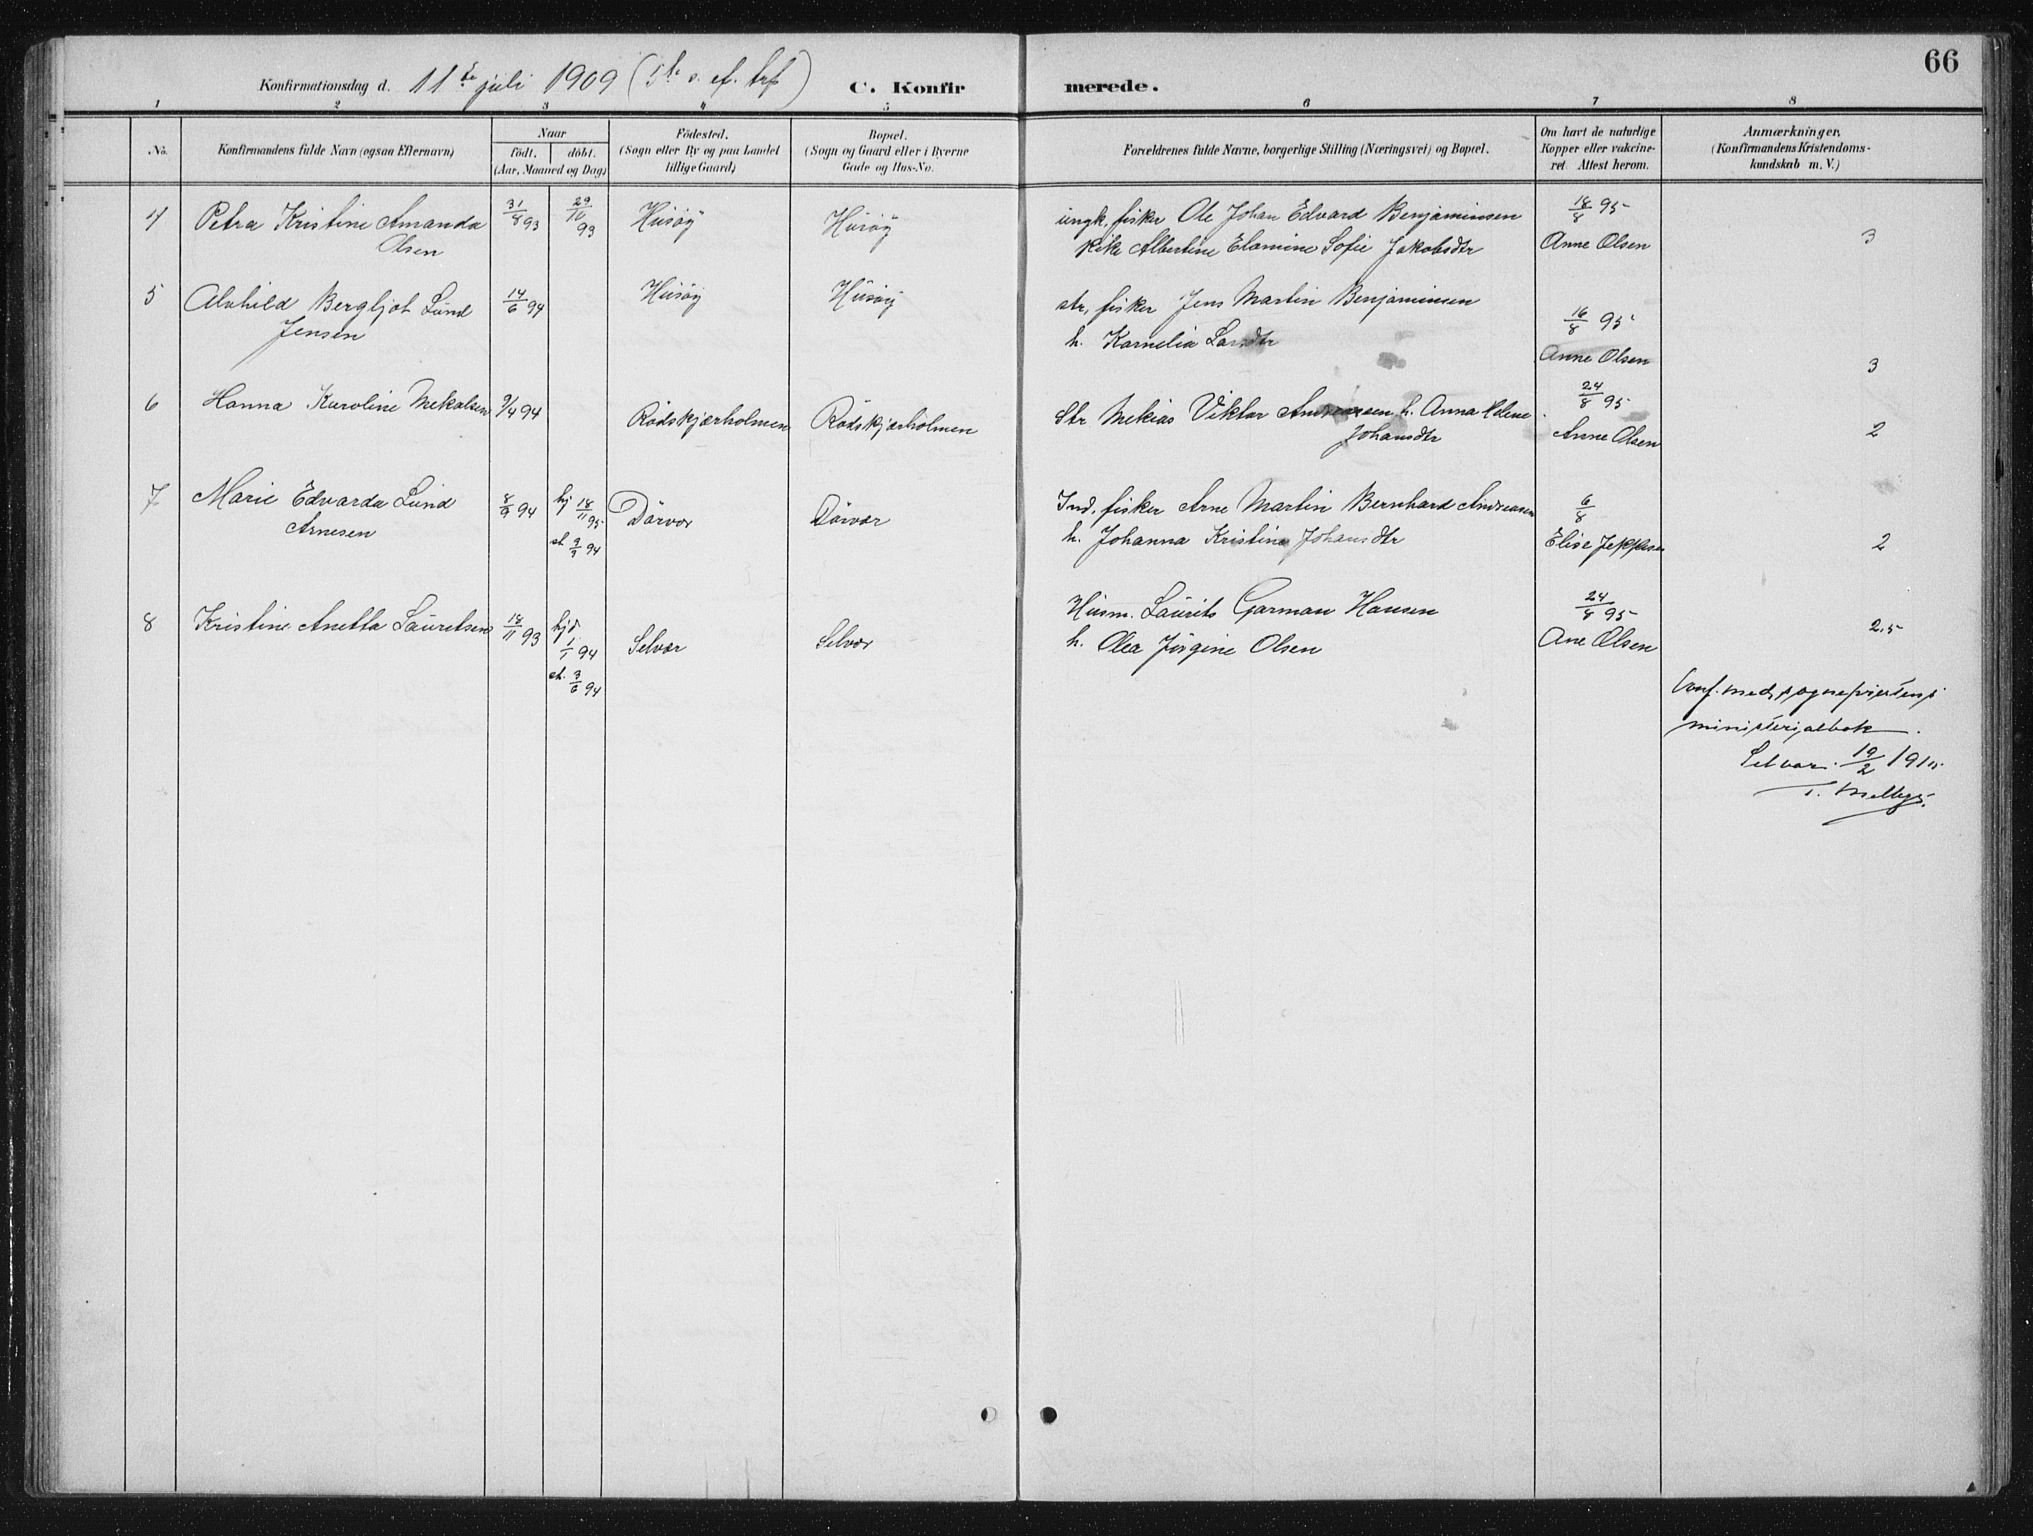 66
Konfirmationsdag d. 11te juli 1909 (5te s. ef. tref) C. Konfirmerede.
1 2 3 4 5 6 7 8
No. Konfirmandens fulde Navn (ogsaa Efternavn) Naar födt. döbt. (Aar, Maaned og Dag) Födested. (Sogn eller By og paa Landet tillige Gaard) Bopæl. (Sogn og Gaard eller i Byerne Gade og Hus-No. Forældrenes fulde Navne, borgerlige Stilling (Næringsvei) og Bopæl. Om havt de naturlige Kopper eller vakcineret. Attest herom. Anmærkninger, (Konfirmandens Kristendomskundskab m. V.)
4 Petra Kristine Amanda 31/8 93 29/10 93 Husöy Husöy ungk. fisker Ole Johan Edvard Benjaminsen 18/8 95
Olsen Pike Albertine Elamine Sofie Jakobsdtr Anne Olsen 3
5 Alvhild Bergljot Lund 14/6 94 Husöy Husöy str, fisker Jens Martin Benjaminsen 16/8 95
Jensen h. Karnelia Larsdtr Anne Olsen 3
6 Hanna Karoline Mekalsen 9/4 94 Rödskjærholmen Rödskjærholmen Str Mekias Viktor Andreassen h. Anna Helene 24/8 95
Johansdtr Anne Olsen 2
7 Marie Edvarda Lund 8/9 94 hj 18/11 95 Dörvær Dörvær Ind. fisker Arne Martin Bernhard Andreasen 6/8
Arnesen st. 9/9 94 h. Johanna Kristine Johansdtr Elise Jeppsen 2
8 Kristine Anetta Lauretsen 18/11 93 hjd 1/1 94 Selvær Selvær Husm. Laurits Garman Hansen 24/8 95
st. 3/6 94 h. Olea Jörgine Olsen Ane Olsen 2.5
Conf. med sognepræstens
ministerialbok.
Selvær 19/2 1910
T. Mellbye.